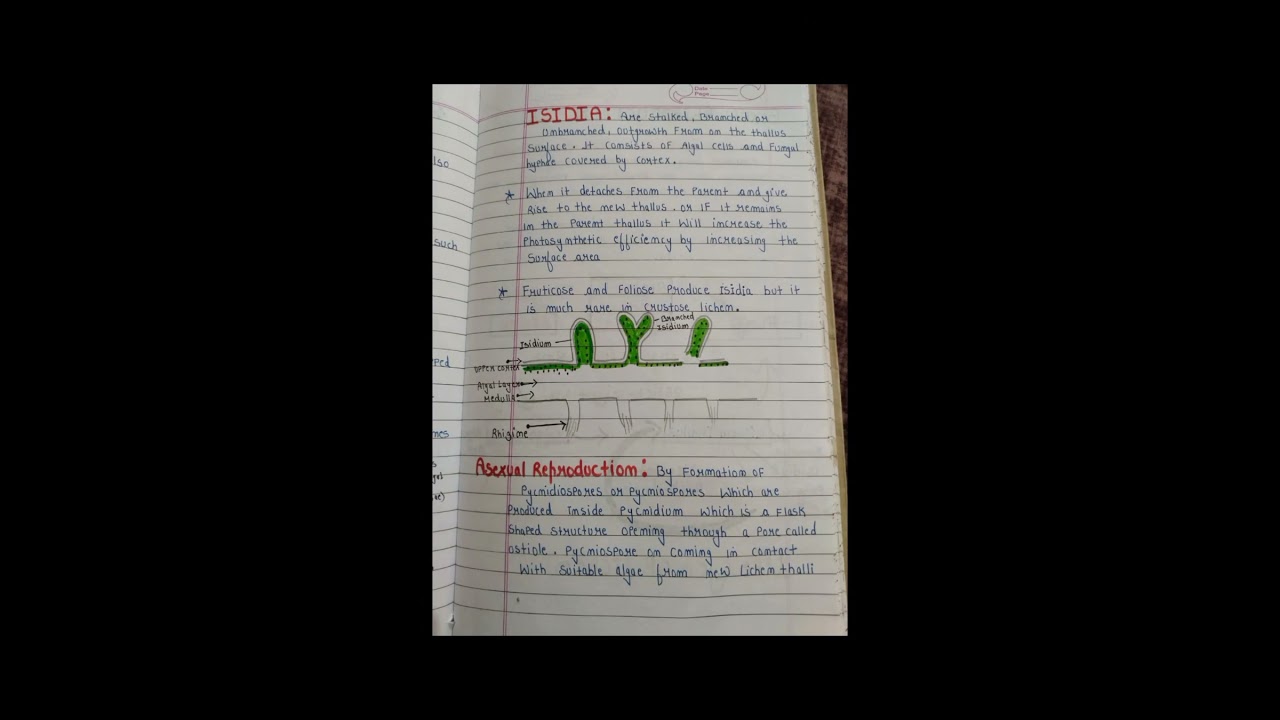 Date
Page
ISIDIA: Are Stalked, Branched or
Unbranched, outgrowth From on the thallus
Surface. It consists of Algal cells and Fungal
hyphae covered by cortex.
* When it detaches From the Parent and give
Rise to the new thallus. or IF it remains
in the Parent thallus it will increase the
Photosynthetic efficiency by increasing the
Surface area
* Fruticose and Foliose Produce Isidia but it
is much rare in crustose lichen.
Branched
Isidium
Isidium
Upper cortex
Algal Layer
Medulla
Rhizine
Asexual Reproduction: By Formation of
Pycnidiospores or Pycniospores which are
Produced inside Pycnidium which is a Flask
Shaped structure opening through a Pore called
ostiole. Pycniospore on coming in contact
With suitable algae from new Lichen thalli
lso
such
ped